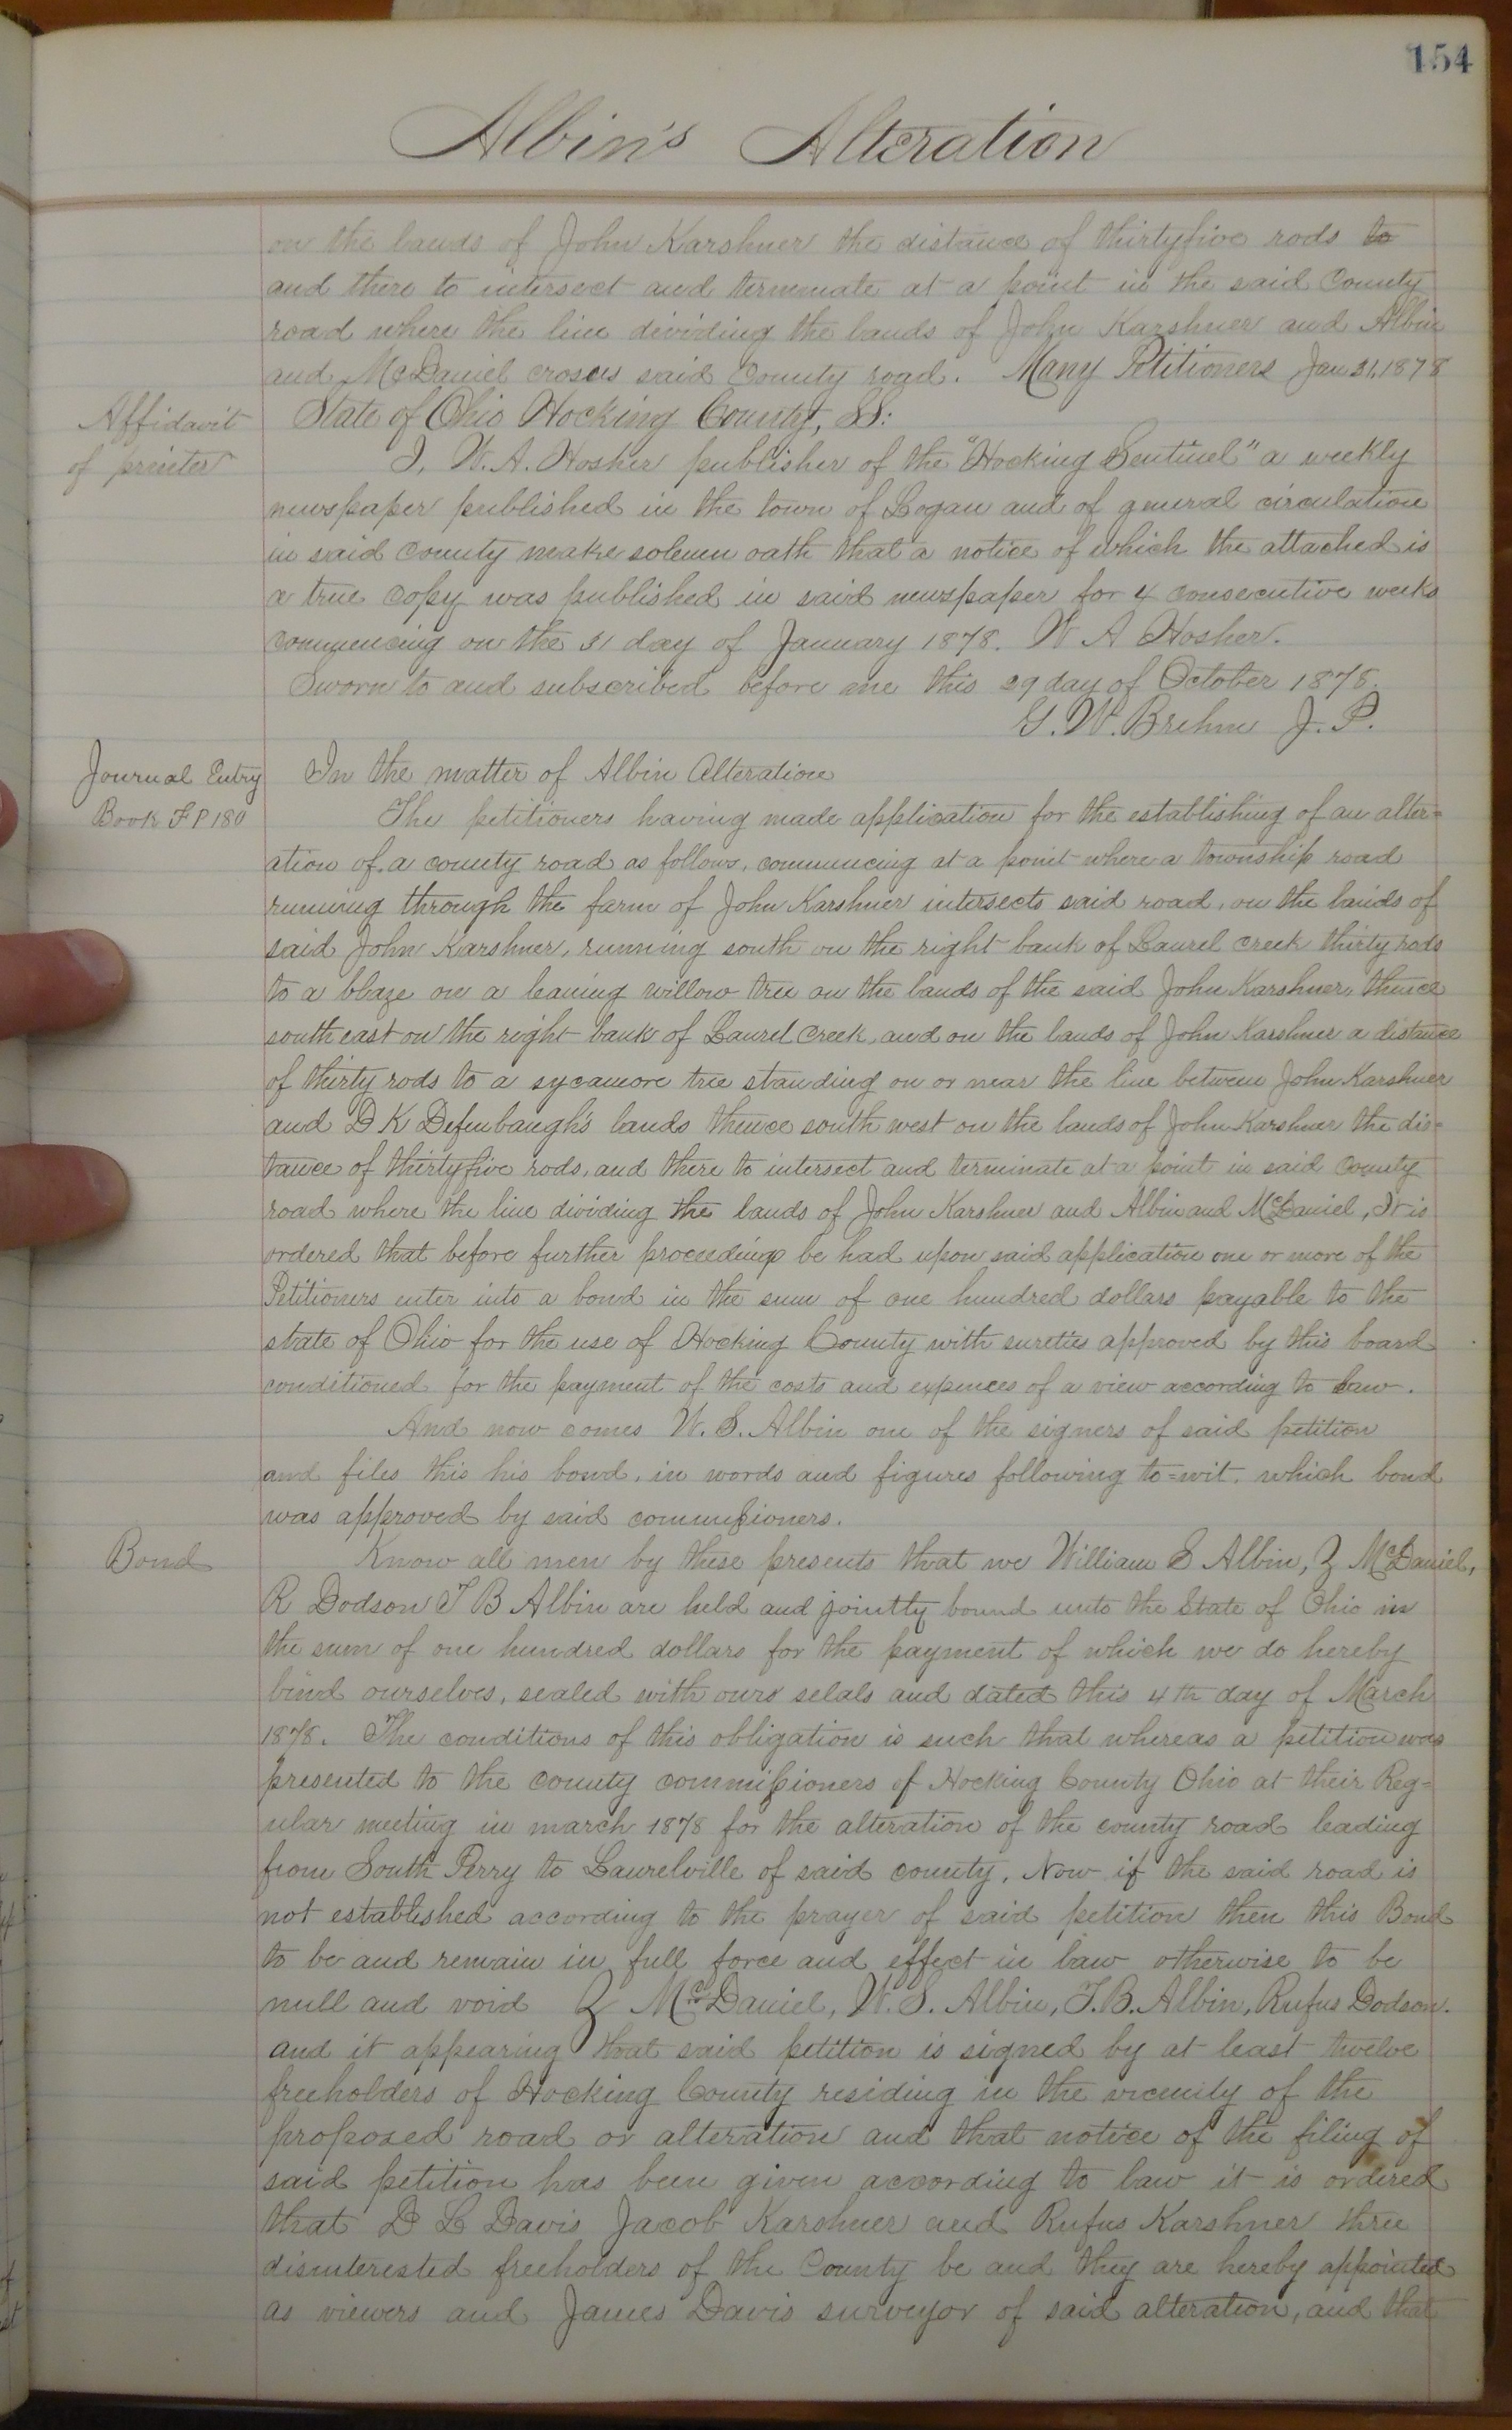 154
Albin's Alteration
on the lands of John Karshner the distance of thirtyfive rods to
and there to intersect and terminate at a point in the said County
road where the line dividing the lands of John Karshner and Albin
and McDaniel croses said County road. Many Petitioners Jan 31, 1878
Affidavit
of printer
State of Ohio Hocking County, SS:
I, W. A. Hosher publisher of the "Hocking Sentinel" a weekly
newspaper published in the town of Logan and of general circulation
in said county make solemn oath that a notice of which the attached is
a true copy was published in said newspaper for 4 consecutive weeks
commencing on the 31 day of January 1878. W A Hosher.
Sworn to and subscribed before me this 29 day of October 1878.
G. W. Brehm J. P.
Journal Entry
Book F P 180
In the matter of Albin Alteration
The petitioners having made application for the establishing of an alter=
ation of a county road as follows, commencing at a point where a township road
running through the farm of John Karshner intersects said road, on the lands of
said John Karshner, running south on the right bank of Laurel creek thirty rods
to a blaze on a leaning willow tree on the lands of the said John Karshner, thence
south east on the right bank of Laurel Creek and on the lands of John Karshner a distance
of thirty rods to a sycamore tree standing on or near the line between John Karshner
and D K Defenbaugh's lands thence south west on the lands of John Karshner the dis=
tance of thirtyfive rods, and there to intersect and terminate at a point in said County
road where the line dividing the lands of John Karshner and Albin and McDaniel, It is
ordered that before further proceedings be had upon said application one or more of the
Petitioners enter into a bond in the sum of one hundred dollars payable to the
state of Ohio for the use of Hocking County with sureties approved by this board
conditioned for the payment of the costs and expences of a view according to law.
And now comes W. S. Albin one of the signers of said petition
and files this his bond, in words and figures following to=wit. which bond
was approved by said commissioners.
Bond
Know all men by these presents that we William S Albin, Z McDaniel,
R Dodson T B Albin are held and jointly bound unto the State of Ohio in
the sum of one hundred dollars for the payment of which we do hereby
bind ourselves, sealed with ours selals and dated this 4th day of March
1878. The conditions of this obligation is such that whereas a petition was
presented to the county commissioners of Hocking County Ohio at their Reg=
ular meeting in march 1878 for the alteration of the county road leading
from South Perry to Laurelville of said county. Now if the said road is
not established according to the prayer of said petition then this Bond
to be and remain in full force and effect in law otherwise to be
null and void Z McDaniel, W. S. Albin, T. B. Albin, Rufus Dodson.
and it appearing that said petition is signed by at least twelve
freeholders of Hocking County residing in the vicinity of the
proposed road or alteration and that notice of the filing of
said petition has been given according to law it is ordered
that D L Davis Jacob Karshner and Rufus Karshner three
disinterested freeholders of the County be and they are hereby appointed
as viewers and James Davis surveyor of said alteration, and that